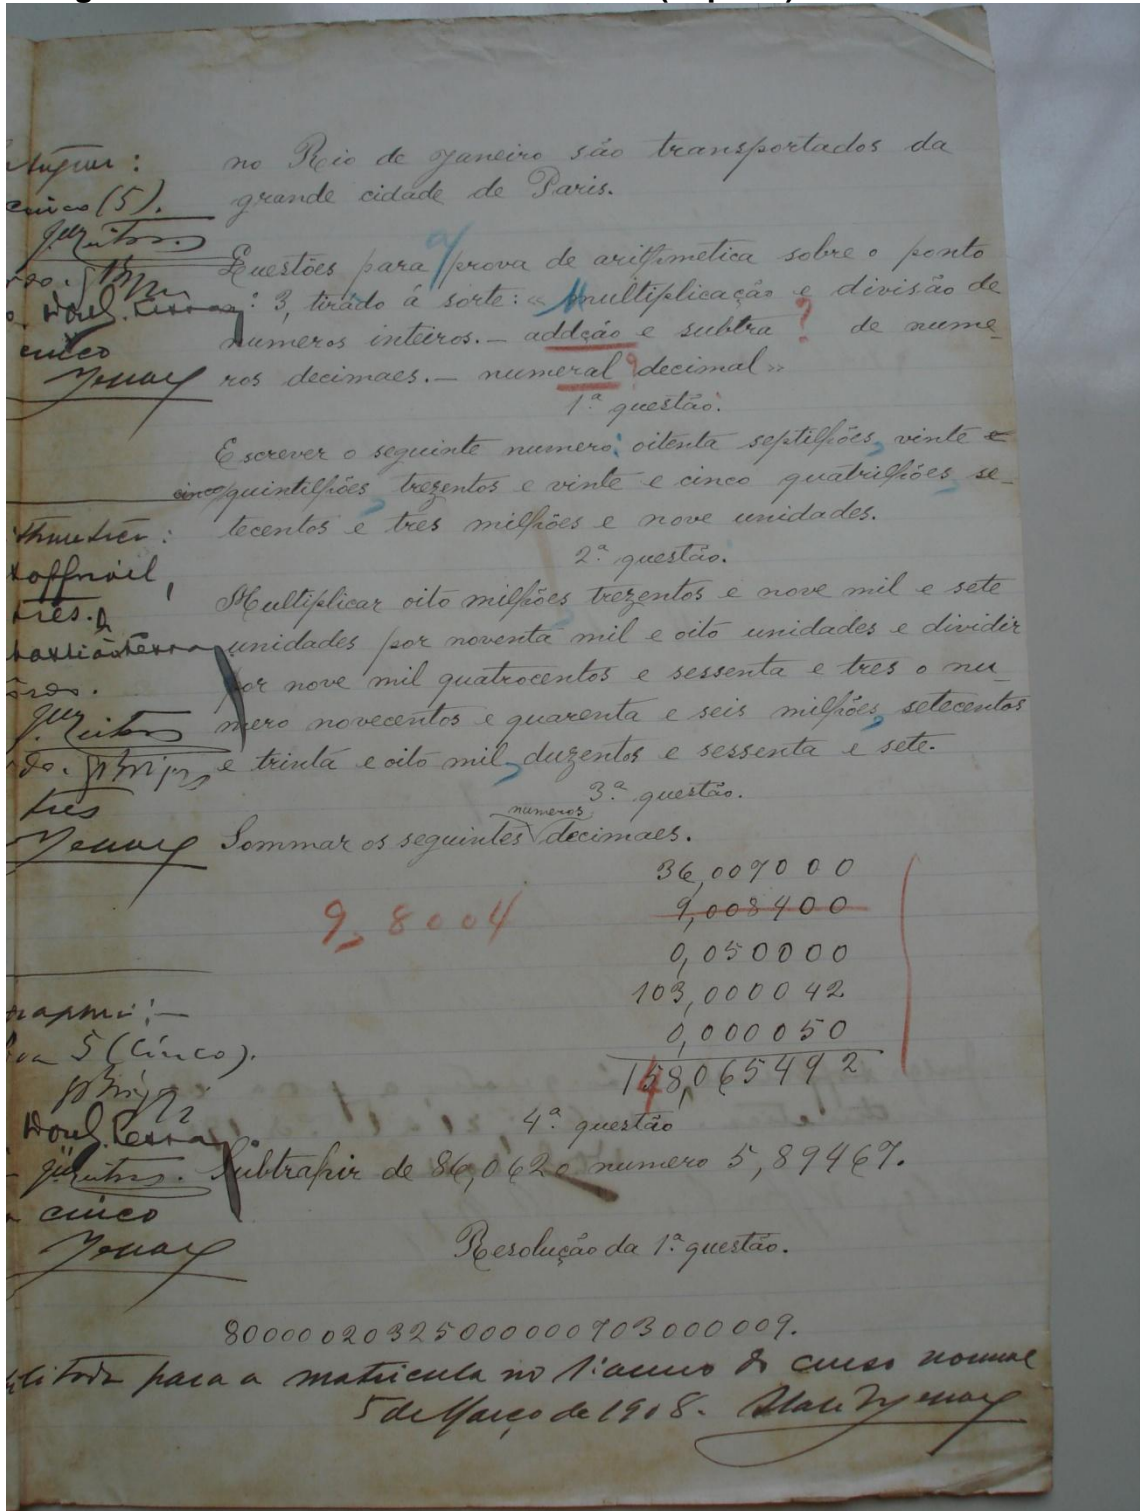 no Rio de Janeiro são transportados da
grande cidade de Paris.
Questões para a prova de arithmetica sobre o ponto
3, tirado á sorte: « multiplicação e divisão de
numeros inteiros. — addção e subtra ? de nume-
ros decimaes. — numeral ? decimal »
1ª questão.
Escrever o seguinte numero: oitenta septilhões, vinte e
cinco quintilhões, trezentos e vinte e cinco quatrilhões, se-
tecentos e tres milhões e nove unidades.
2ª questão.
Multiplicar oito milhões trezentos e nove mil e sete
unidades por noventa mil e oito unidades e dividir
por nove mil quatrocentos e sessenta e tres o nu-
mero novecentos e quarenta e seis milhões, setecentos
e trinta e oito mil, duzentos e sessenta e sete.
3ª questão.
Sommar os seguintes numeros decimaes.
36,007000
9,8004
9,008400
0,050000
103,000042
0,000050
158,065492
4ª questão
Subtrahir de 86,062 o numero 5,89467.
Resolução da 1ª questão.
80000020325000000703000009.
para a matricula no 1º anno do curso normal
5 de Março de 1908.
cinco (5).
cinco
tres.
tres
5 (Cinco).
cinco